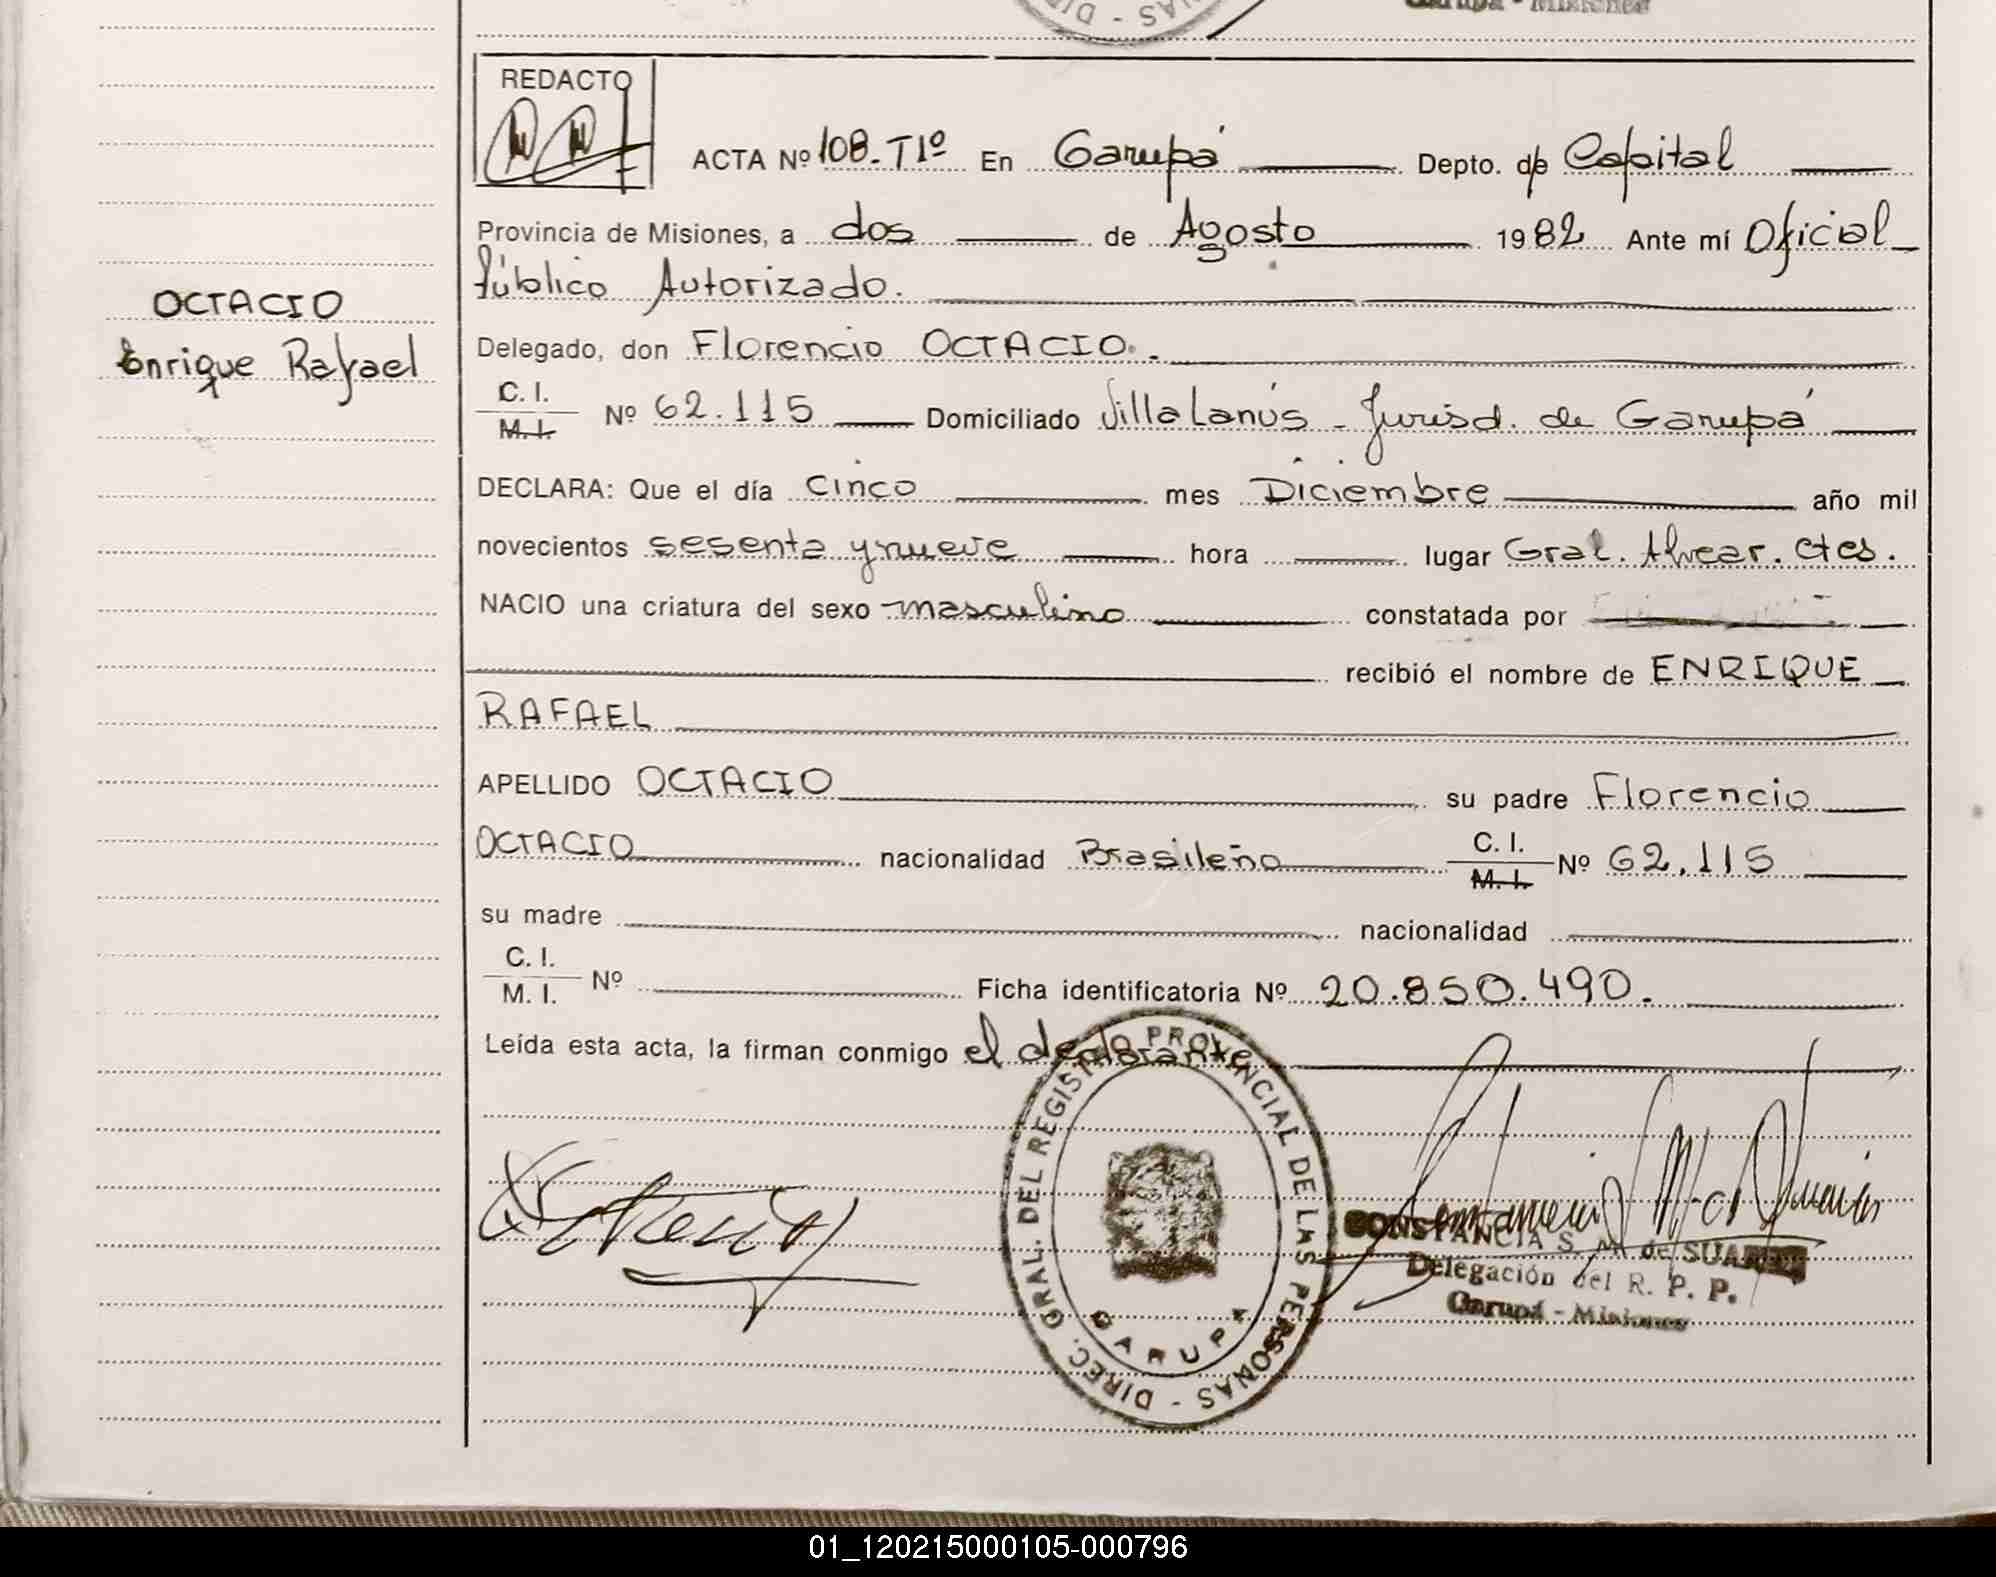 DIREC. - SANOS
Garupá - Misiones
REDACTO
ACTA Nº 108. T1º En Garupá Depto. de Capital
Provincia de Misiones, a dos de Agosto 1982 Ante mí Oficial
Público Autorizado.
Delegado, don Florencio OCTACIO.
C. I.
M. I.
Nº 62.115 Domiciliado Villa Lanús - Jurisd. de Garupá
OCTACIO
Enrique Rafael
DECLARA: Que el día cinco mes Diciembre año mil
novecientos sesenta y nueve hora lugar Gral. Alvear. Ctes.
NACIO una criatura del sexo masculino constatada por
recibió el nombre de ENRIQUE
RAFAEL
APELLIDO OCTACIO su padre Florencio
OCTACIO nacionalidad Brasileño C. I. Nº 62.115
M. I.
su madre nacionalidad
C. I.
M. I.
Nº Ficha identificatoria Nº 20.850.490.
Leída esta acta, la firman conmigo el declarante
DIREC. GRAL. DEL REGISTRO PROVINCIAL DE LAS PERSONAS -
GARUPA
CONSTANCIA S. M. de SUAREZ
Delegación del R. P. P.
Garupá - Misiones
01_120215000105-000796